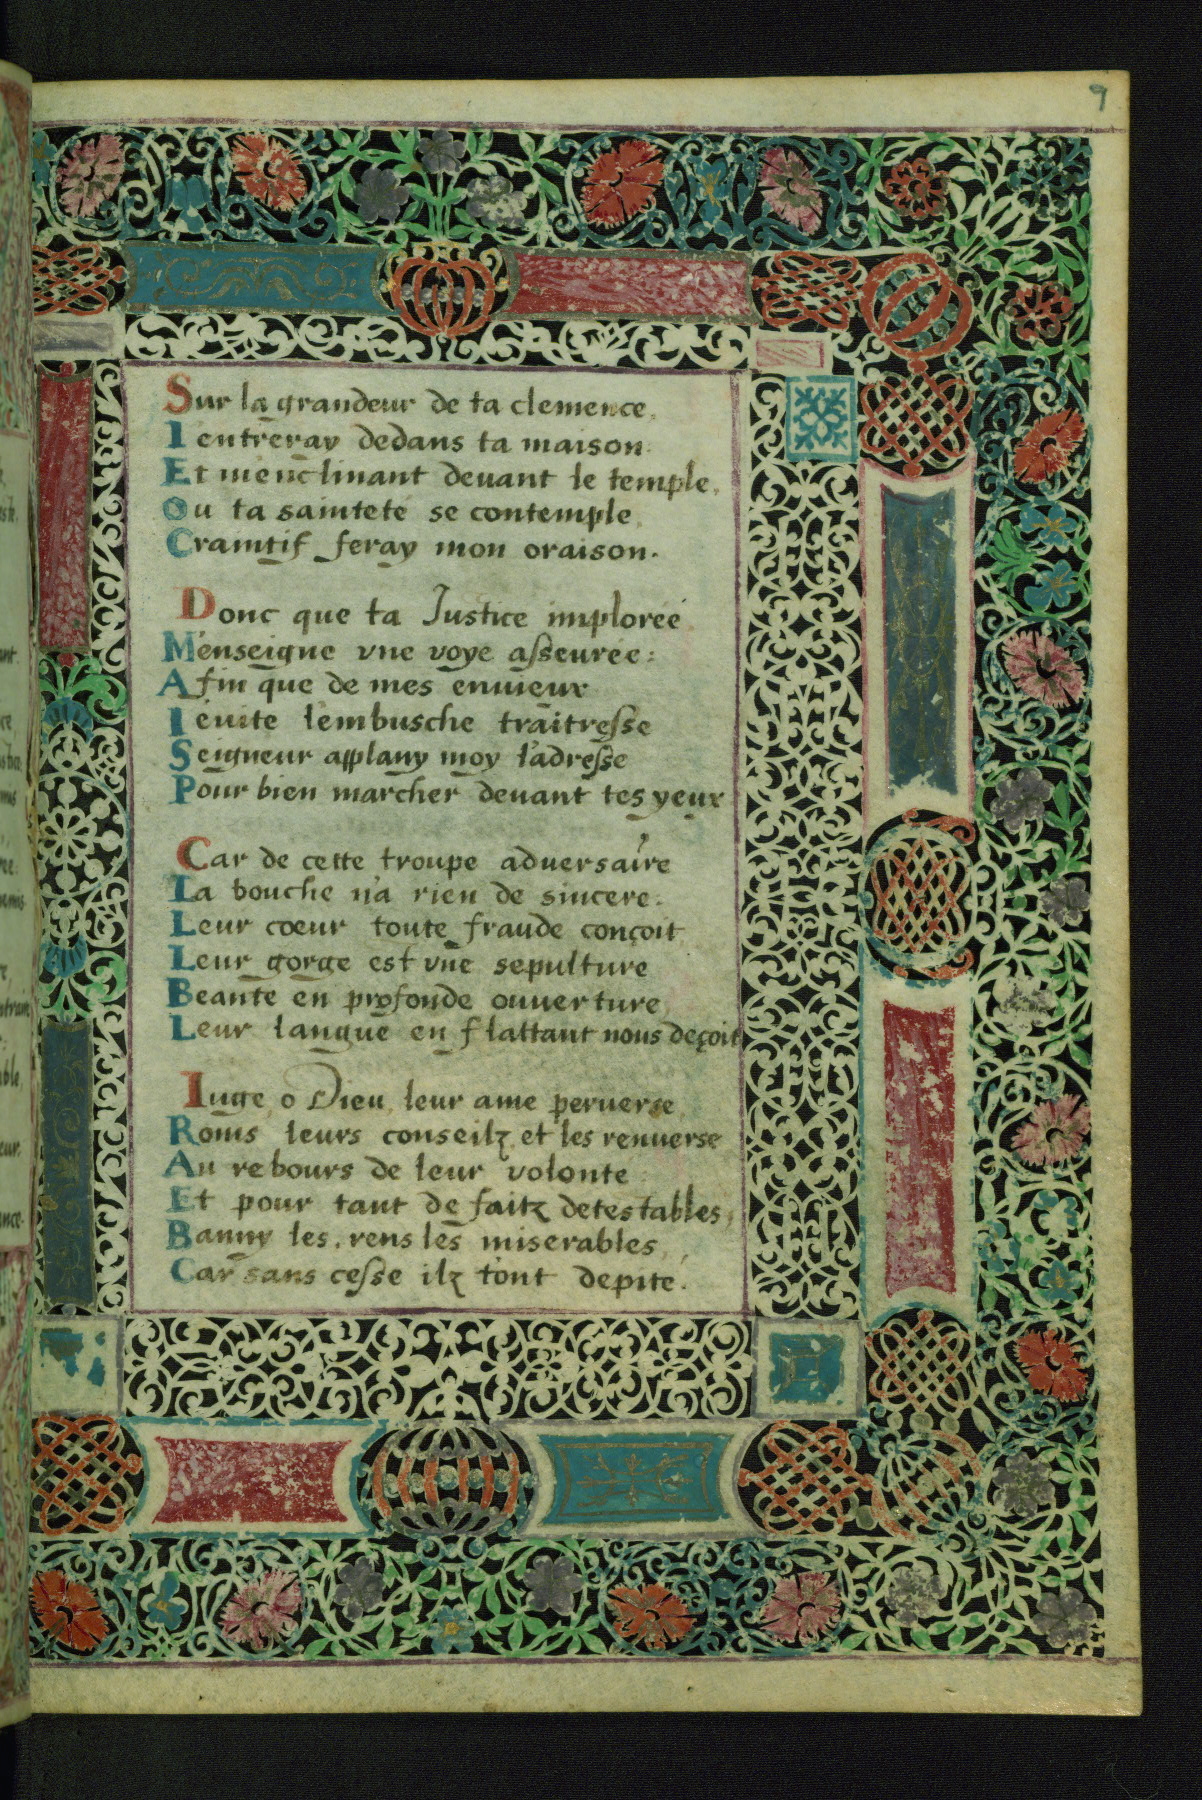 9
Sur la grandeur de ta clemence,
I entreray dedans ta maison.
Et m'enclinant deuant le temple,
Ou ta sainteté se contemple,
Craintif feray mon oraison.
Donc que ta Justice implorée
M'enseigne vne voye asseurée:
Afin que de mes enuieux
I'éuite l'embusche traitresse
Seigneur applany moy l'adresse
Pour bien marcher deuant tes yeux
Car de cette troupe aduersaire
La bouche n'a rien de sincere:
Leur cœur toute fraude conçoit
Leur gorge est vne sepulture
Beante en profonde ouuerture,
Leur langue en flattant nous deçoit
Iuge, o Dieu, leur ame peruerse,
Roms leurs conseilz et les renuerse
Au rebours de leur volonte
Et pour tant de faitz detestables,
Banny les, rens les miserables,
Car sans cesse ilz t'ont depité.